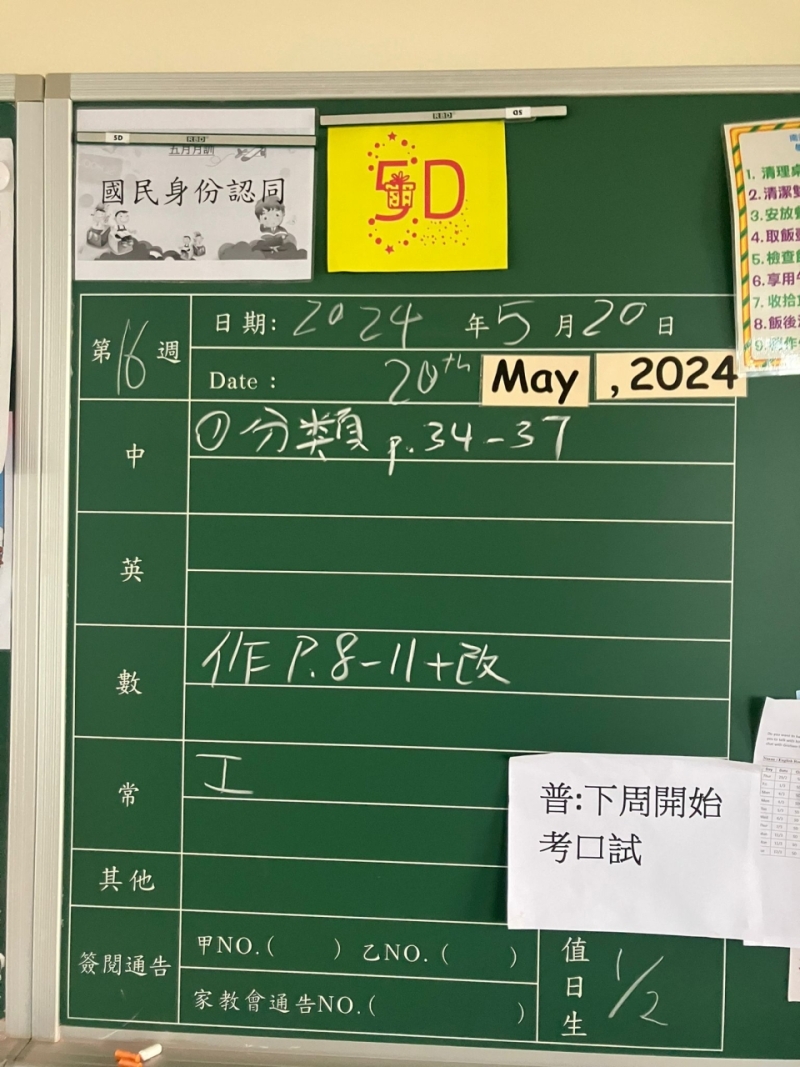 5D
RBD
五月月訓
國民身份認同
RBD
5D
5D
第16週
日期: 2024年5月20日
Date : 20th May , 2024
中
① 分類 p.34-37
英
數
作 P.8-11+改
常
工
其他
普:下周開始
考口試
簽閱通告
甲NO.( ) 乙NO.( )
家教會通告NO.( )
值日生
1/2
1. 清理桌
2. 清潔雙
3. 安放
4. 取飯
5. 檢查
6. 享用
7. 收拾
8. 飯後